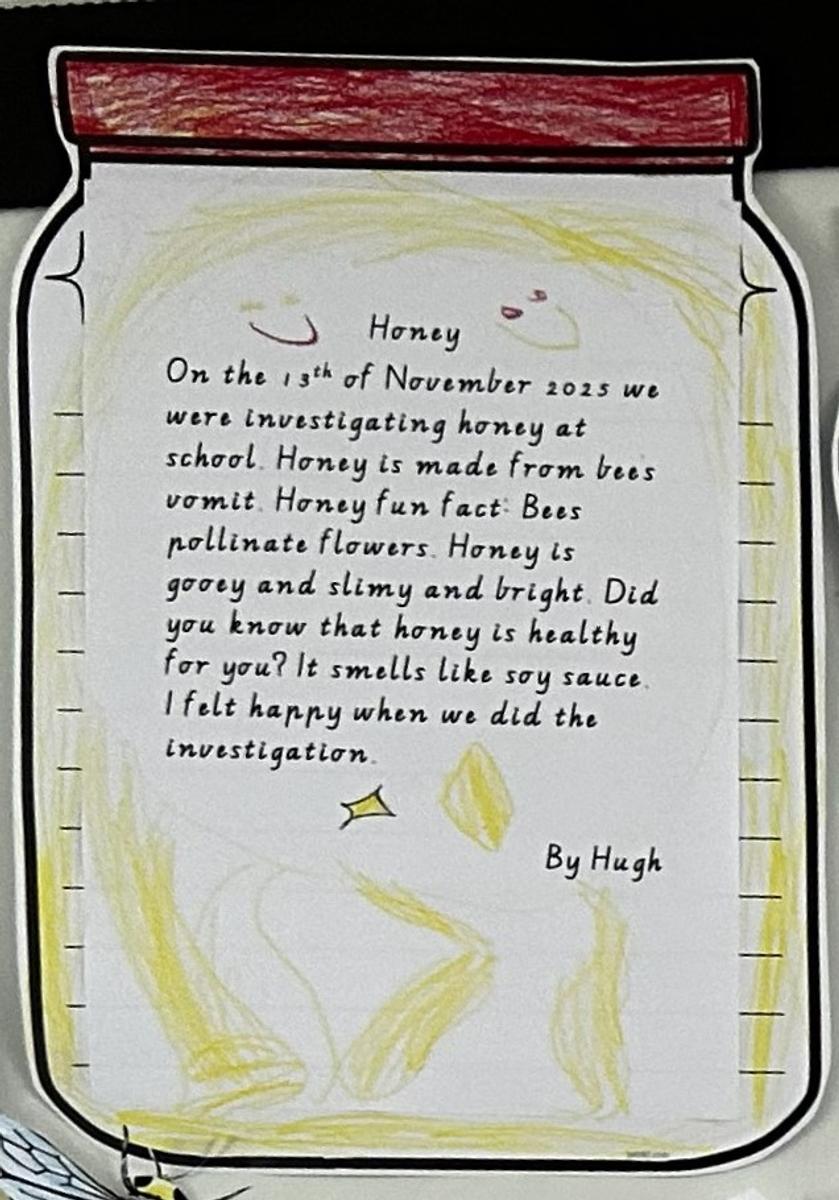 Honey
On the 13th of November 2025 we
were investigating honey at
school. Honey is made from bees
vomit. Honey fun fact: Bees
pollinate flowers. Honey is
gooey and slimy and bright. Did
you know that honey is healthy
for you? It smells like soy sauce.
I felt happy when we did the
investigation.
By Hugh